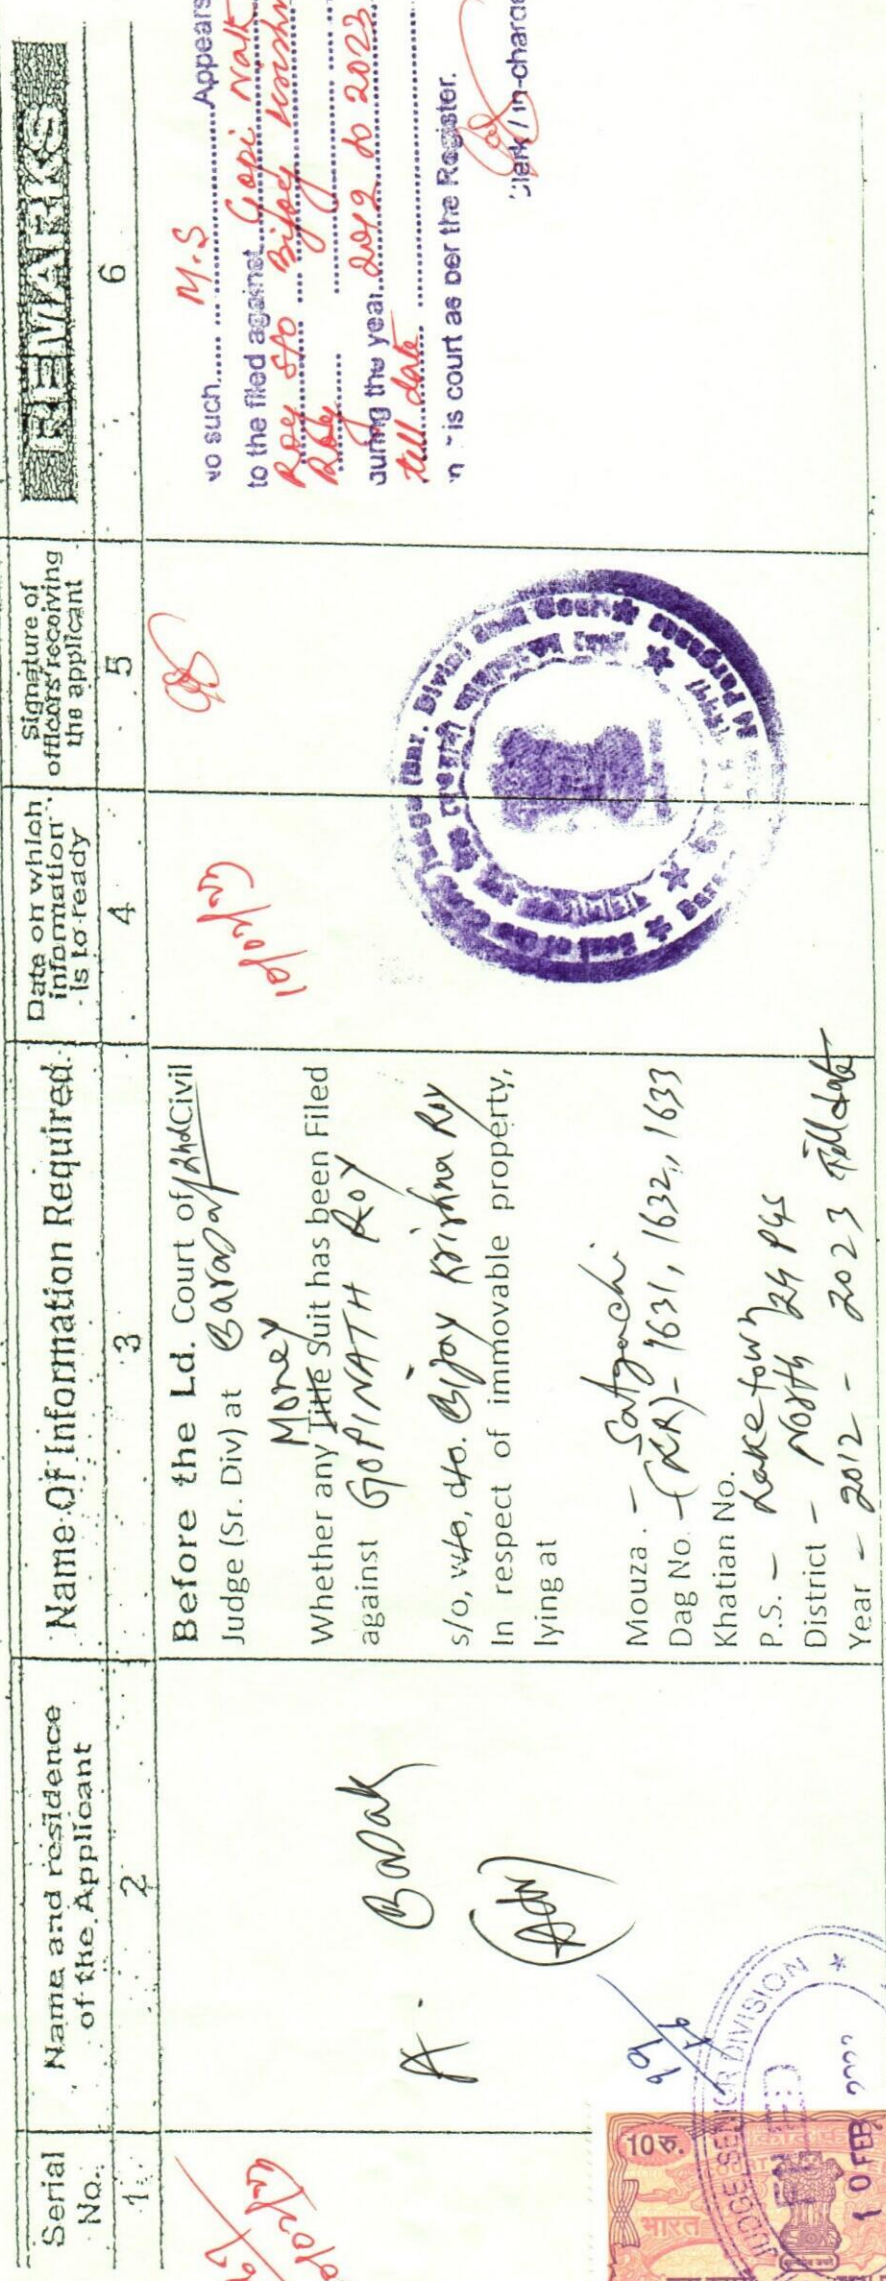 Serial
No.
Name and residence
of the Applicant
Name Of Information Required.
Date on which
information
is to ready
Signature of
officers receiving
the applicant
REMARKS
1
2
3
4
5
6
A. Barak
(Adv)
Before the Ld. Court of 2nd Civil
Judge (Sr. Div) at Barasat
Money
Whether any Title Suit has been Filed
against GOPINATH ROY
s/o, w/o, d/o. Bijoy Krishna Roy
In respect of immovable property,
lying at
Mouza. - Satgachi
Dag No. - (RR) - 1631, 1632, 1633
Khatian No.
P.S. - Lake town
District - North 24 PGS
Year - 2012 - 2023 Till date
No such ...... M.S ...... Appears
to the filed against Gopi Nath
Roy S/o Bijoy Krishn
Roy
during the year 2012 to 2023
till date
in this court as per the Register.
Clerk / In-charge
Seal of the Civil Judge (Snr. Divn) 2nd Court
24 Parganas
10 रु.
भारत
JUDGE, SENIOR DIVISION
10 FEB